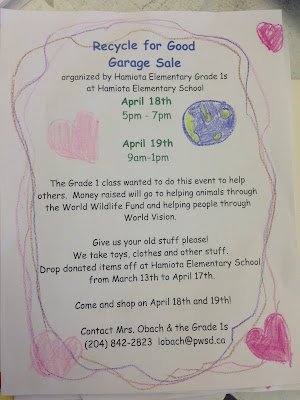 Recycle for Good
Garage Sale
organized by Hamiota Elementary Grade 1s
at Hamiota Elementary School
April 18th
5pm - 7pm
April 19th
9am-1pm
The Grade 1 class wanted to do this event to help
others. Money raised will go to helping animals through
the World Wildlife Fund and helping people through
World Vision.
Give us your old stuff please!
We take toys, clothes and other stuff.
Drop donated items off at Hamiota Elementary School
from March 13th to April 17th.
Come and shop on April 18th and 19th!
Contact Mrs. Obach & the Grade 1s
(204) 842-2823 lobach@pwsd.ca